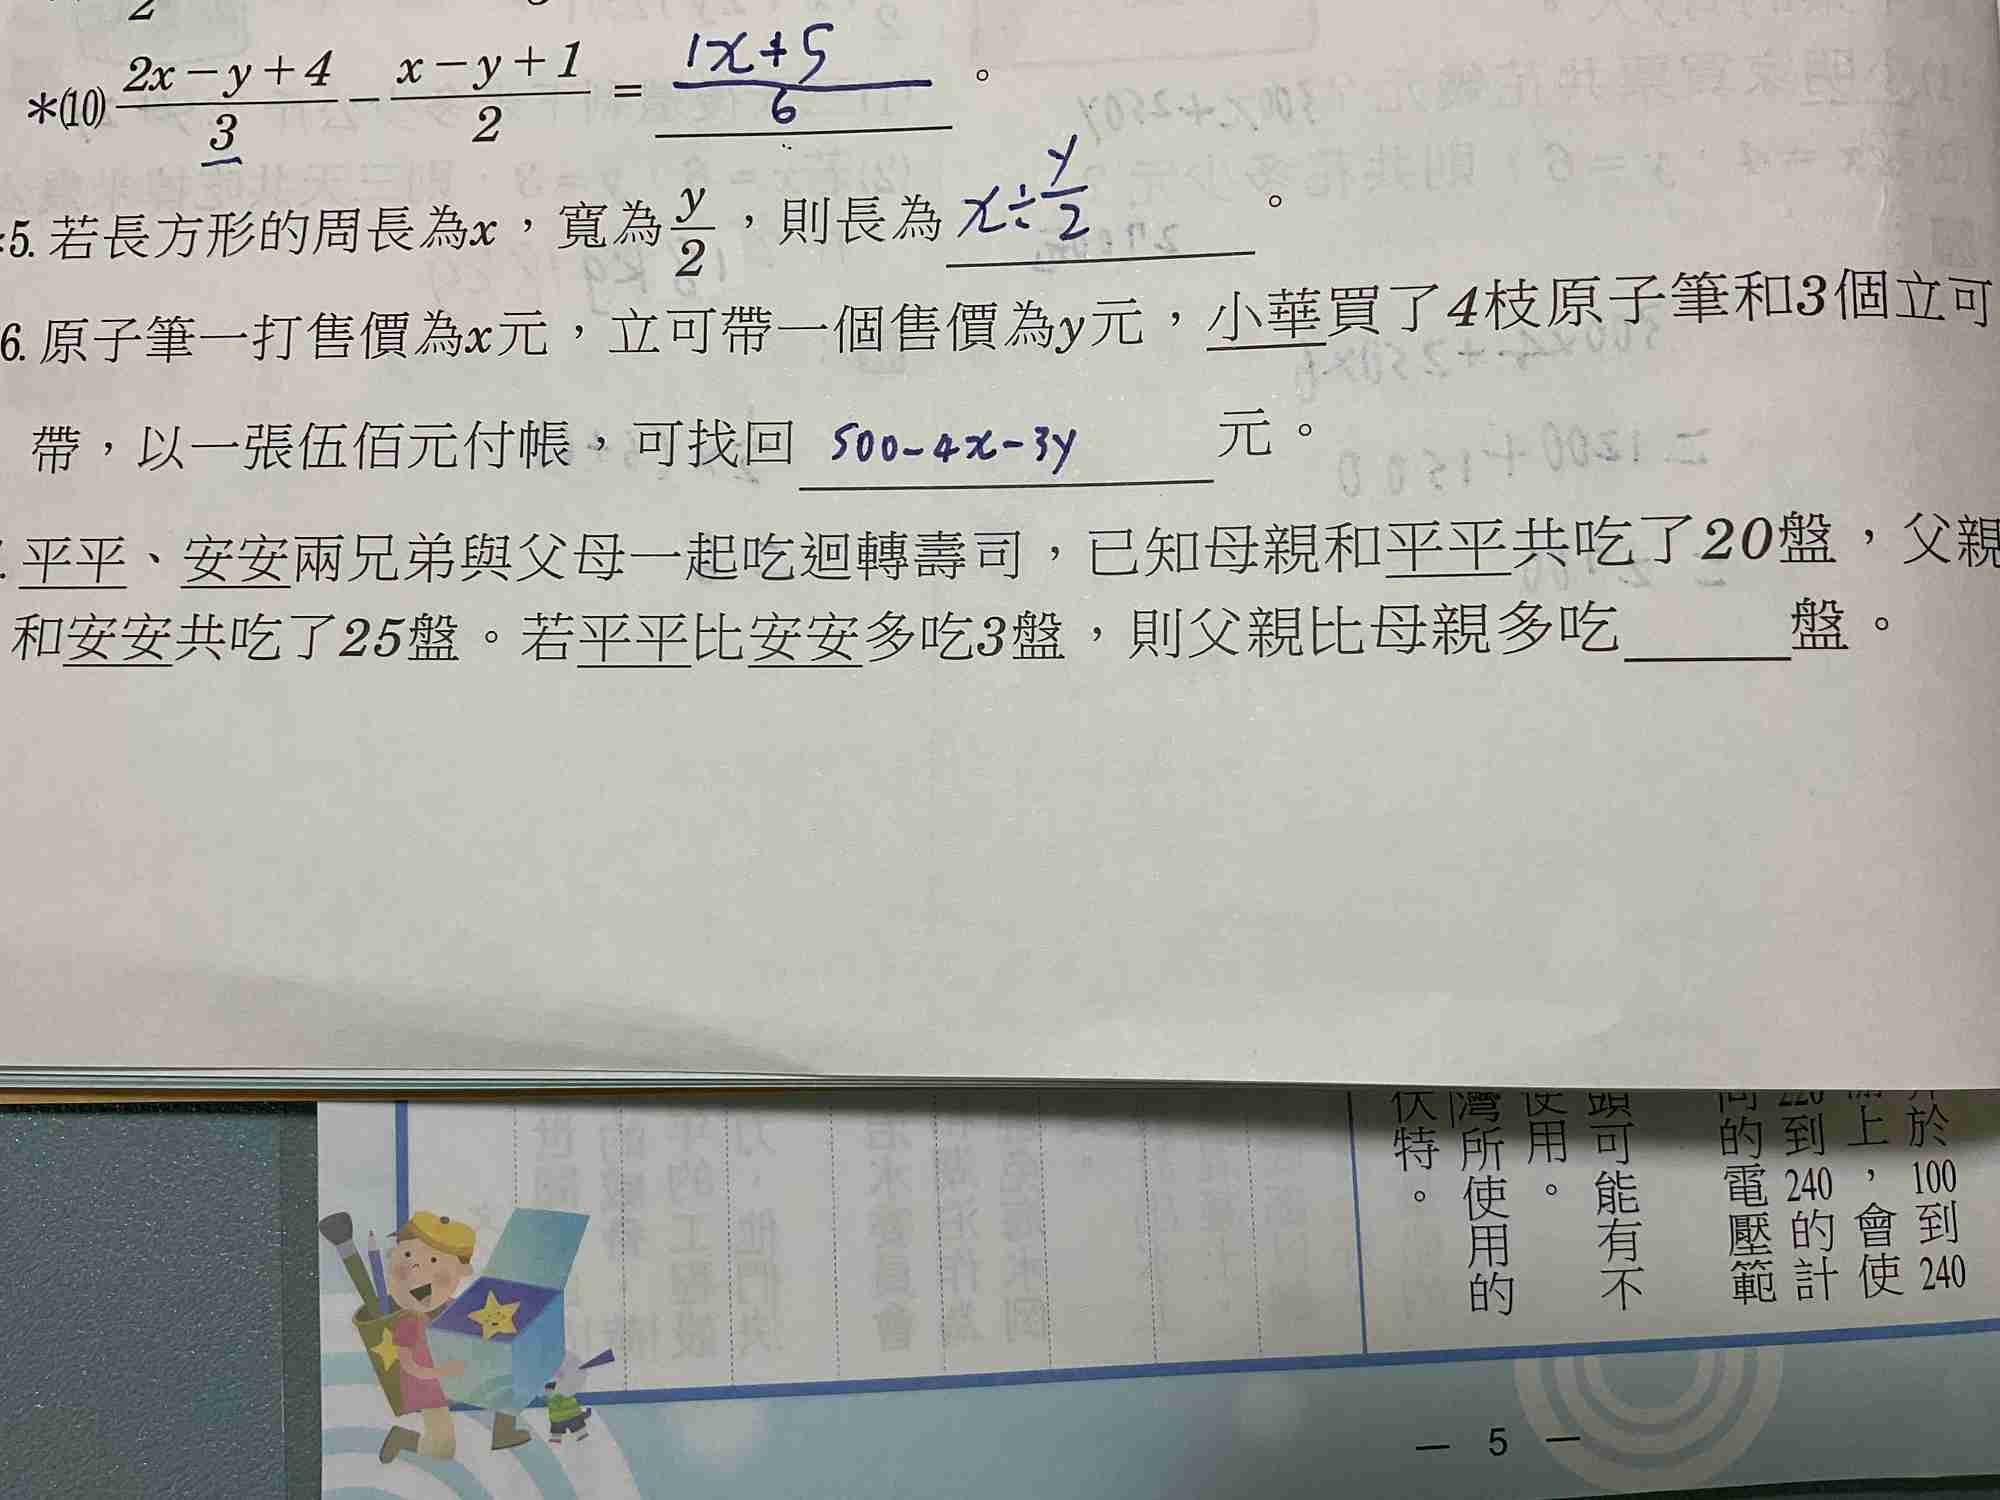 *⑽ (2x－y＋4)/3 － (x－y＋1)/2 ＝ (1x+5)/6 。
5. 若長方形的周長為x，寬為y/2，則長為 x÷y/2 。
6. 原子筆一打售價為x元，立可帶一個售價為y元，小華買了4枝原子筆和3個立可
帶，以一張伍佰元付帳，可找回 500-4x-3y 元。
平平、安安兩兄弟與父母一起吃迴轉壽司，已知母親和平平共吃了20盤，父親
和安安共吃了25盤。若平平比安安多吃3盤，則父親比母親多吃＿＿＿盤。
於100到240
上，會使
220到240的計
的電壓範
頭可能有不
使用。
灣所使用的
伏特。
— 5 —